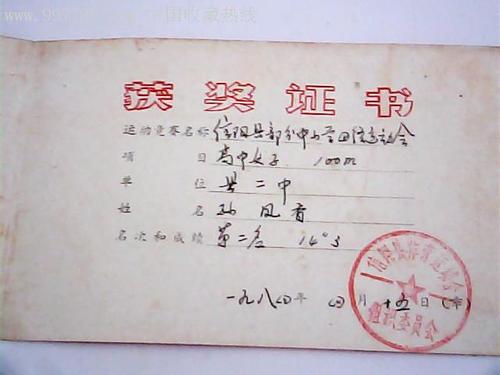 中国收藏热线
获奖证书
运动竞赛名称 信阳县部分中小学田径运动会
项目 高中女子 100m
单位 县二中
姓名 孙凤香
名次和成绩 第二名 14"3
一九八四年 四月 十五日(章)
组织委员会